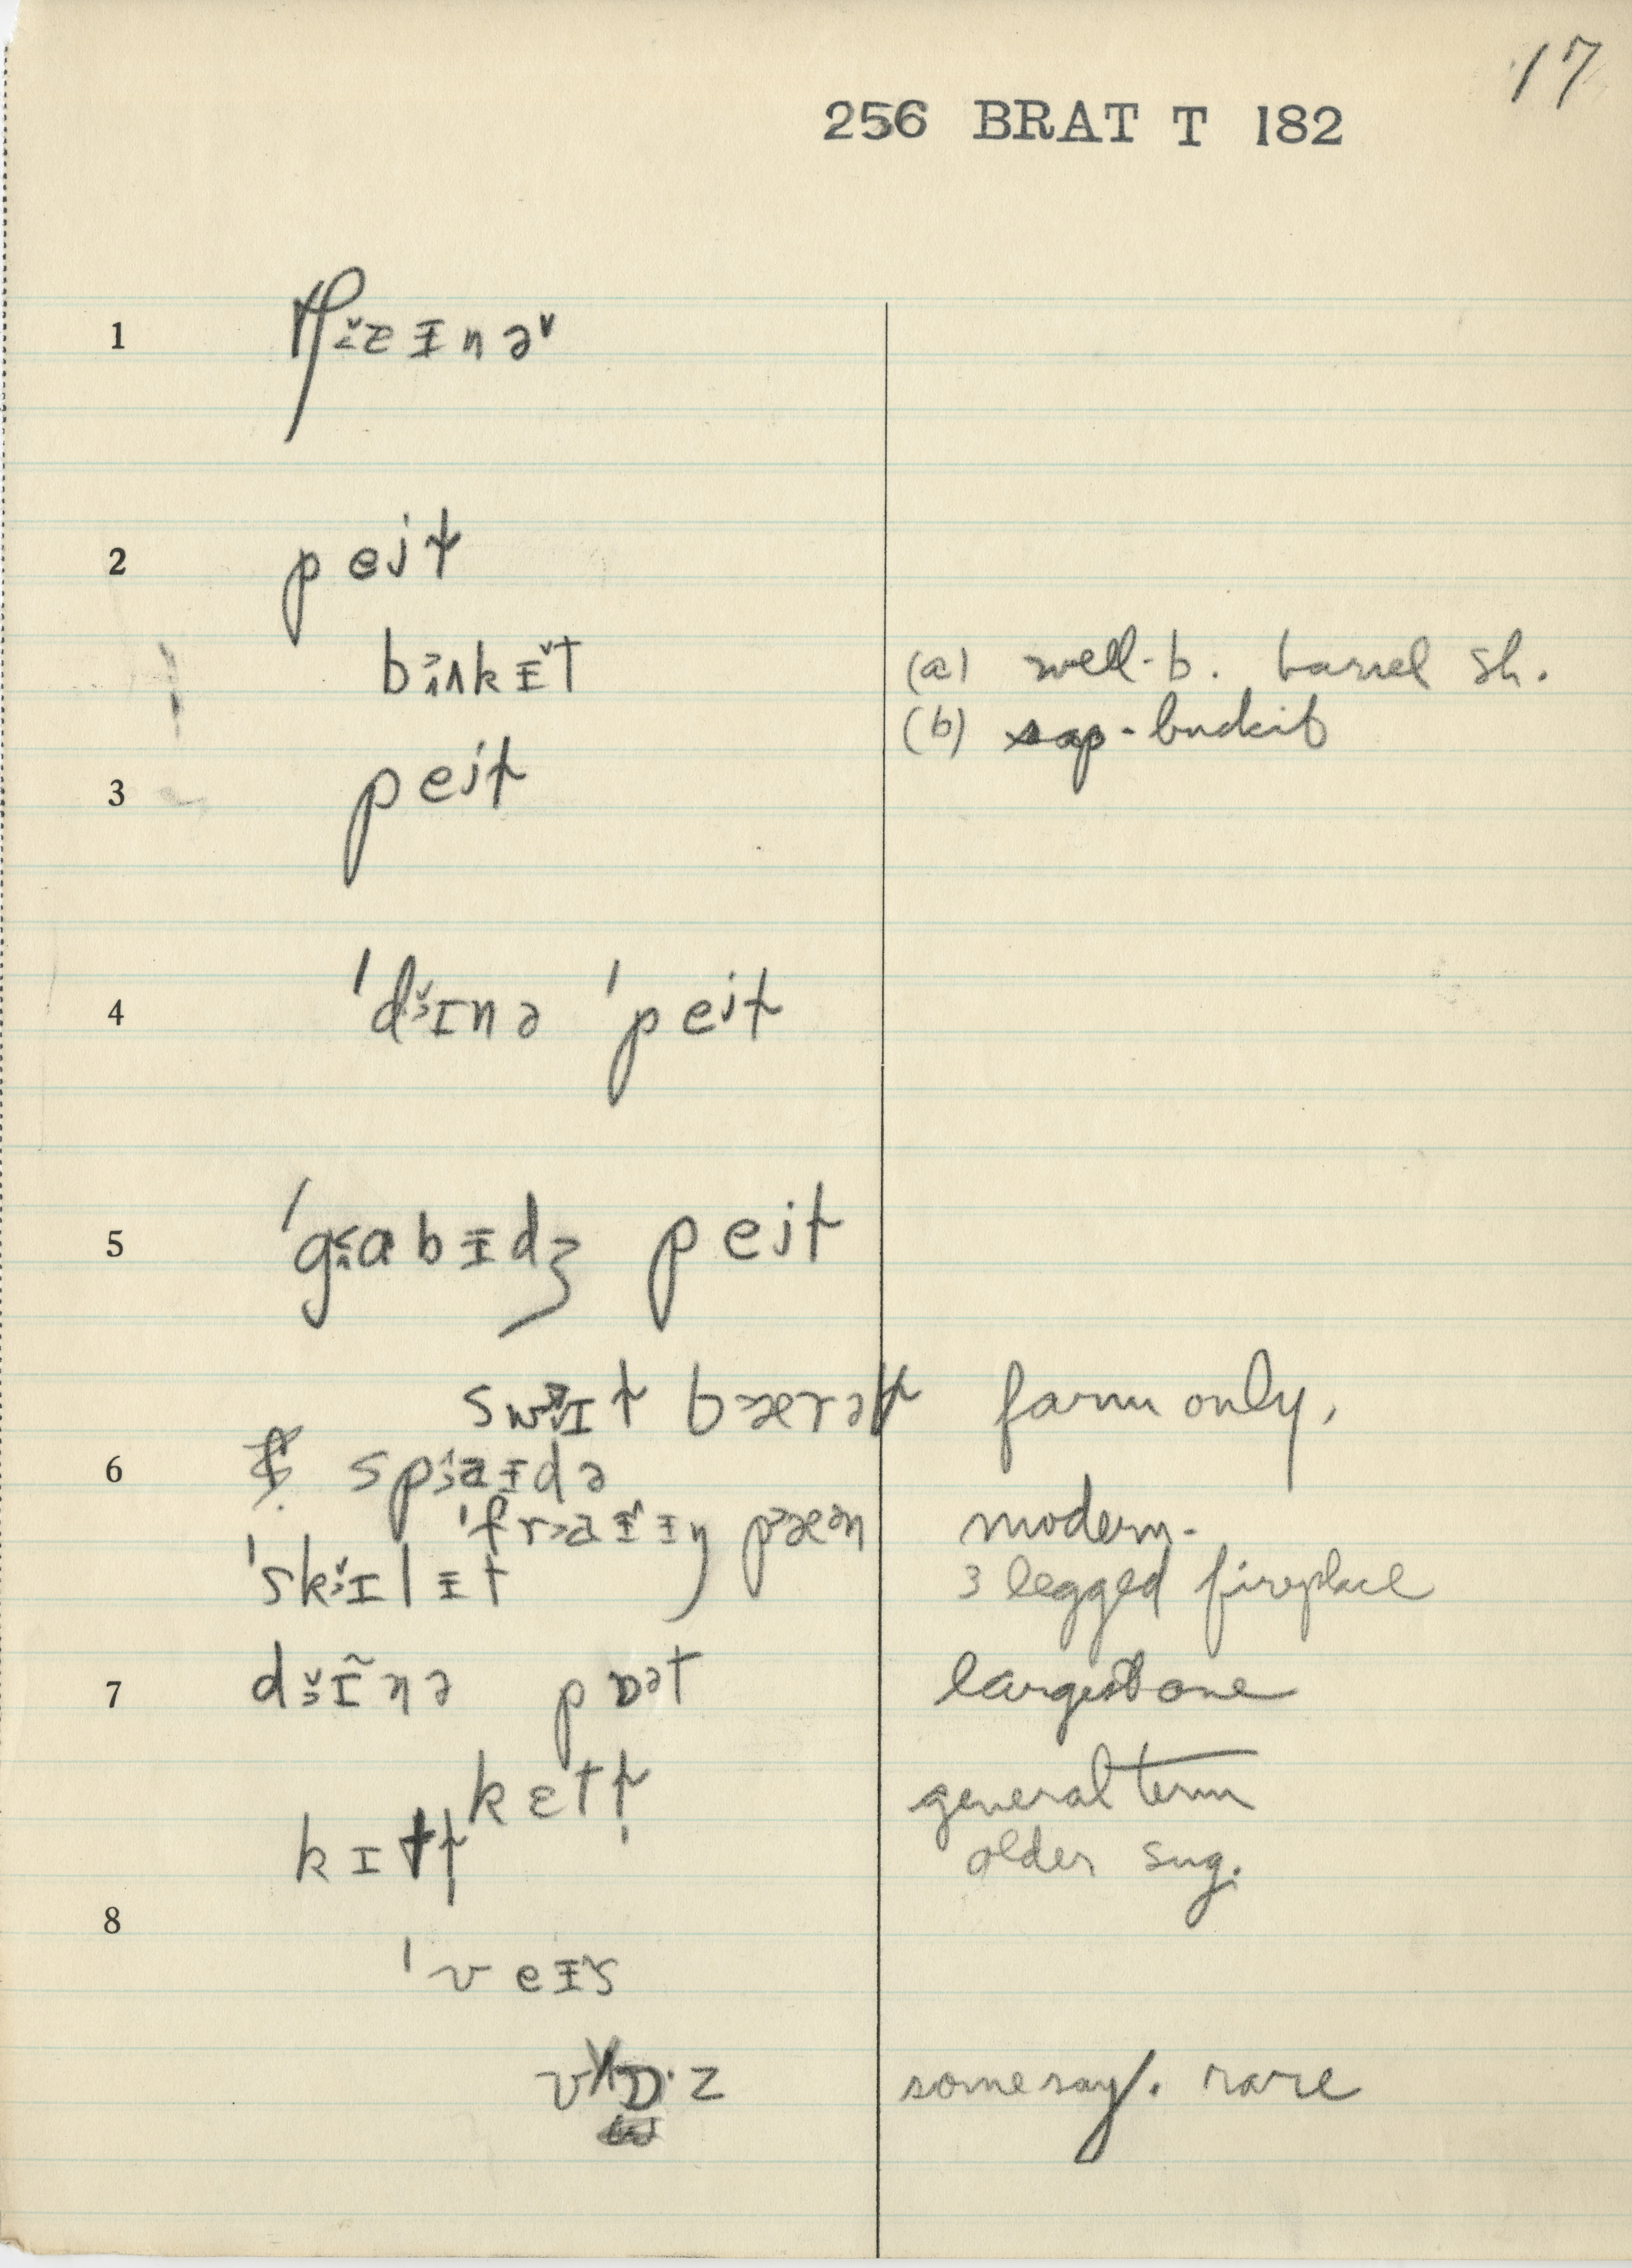 17
256 BRAT T 182
1
2 pejɫ
bɜʌkɪ̵̌t (a) well-b. barrel sh.
(b) sap-buckit
3 pejɫ
4 ˈdɜ̌ɪnə ˈpejɫ
5 ˈgɑbɪ̵dʒ pejɫ
swɪɫ bærəɫ farm only,
6 spaɪ̵də
ˈfraɪ̵ɪ̵ŋ pæən modern-
ˈskɜ̌ɪlɪ̵t 3 legged fireplace
7 dɜ̌ɪ̃nə pɒət largest one
kɛtɫ̩ general term
kɪtɫ̩ older sug.
8
ˈveɪ̵s
vɒ·z some say. rare